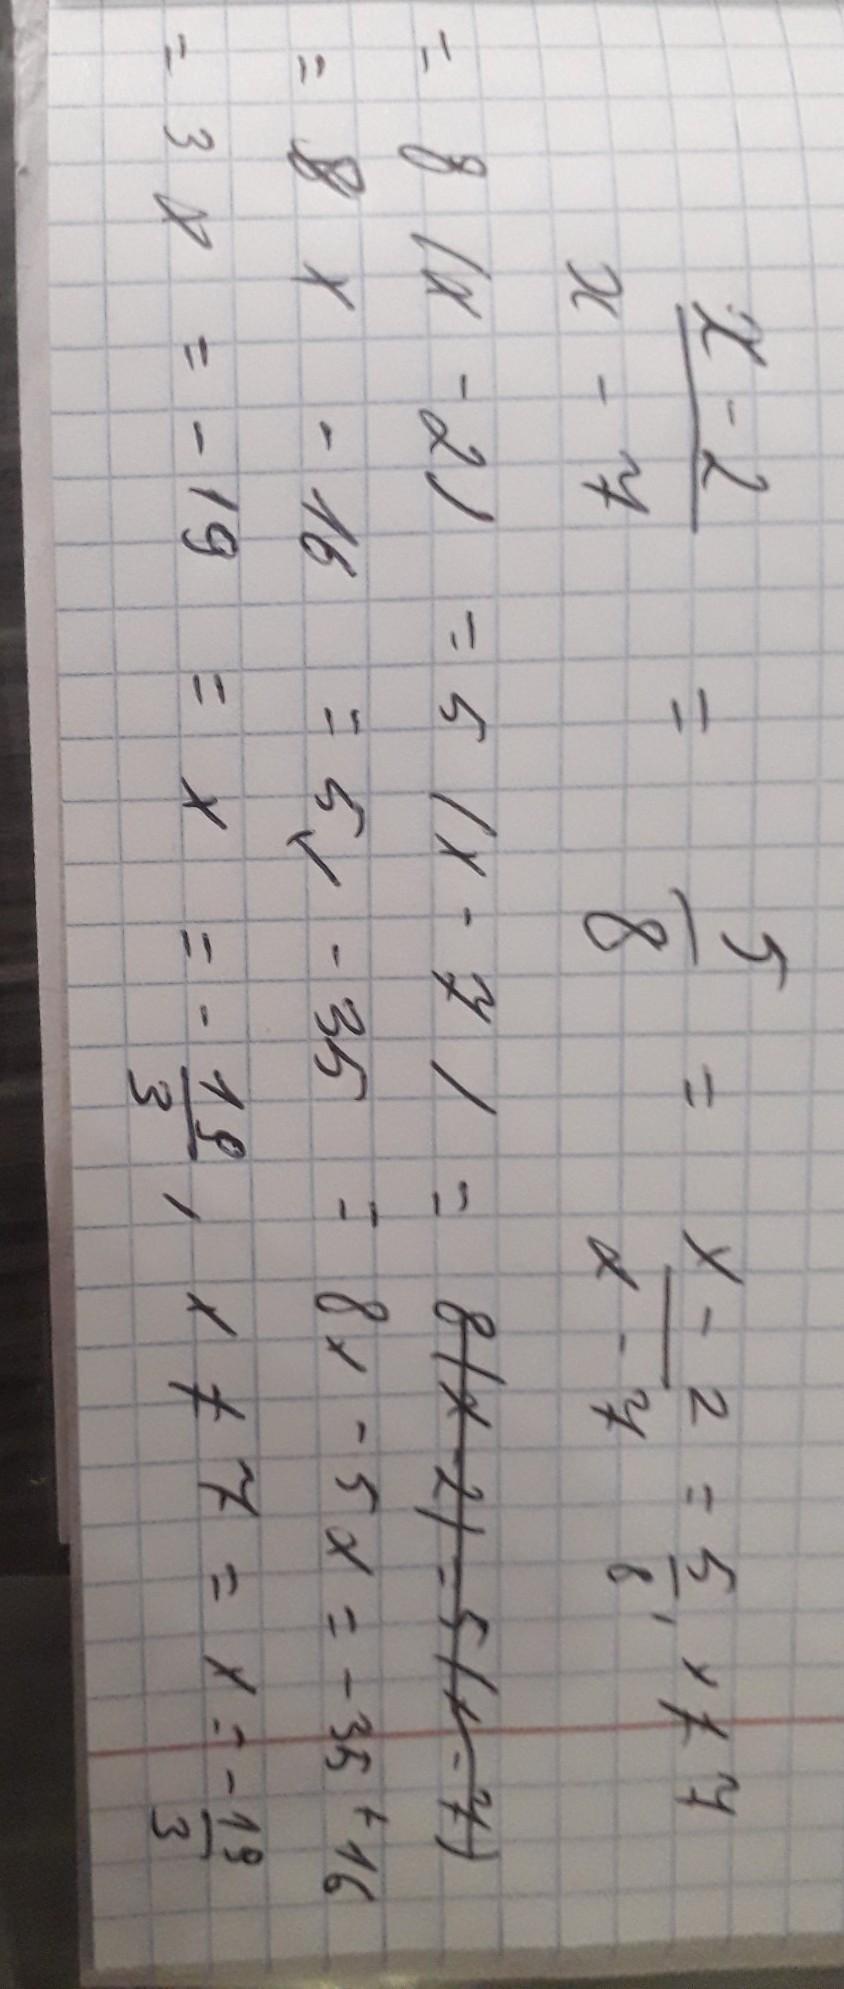 x - 2 / x - 7 = 5 / 8 = x - 2 / x - 7 = 5 / 8, x ≠ 7
= 8 (x - 2) = 5 (x - 7) = 8(x - 2) = 5(x - 7)
= 8 x - 16 = 5x - 35 = 8x - 5x = -35 + 16
= 3 x = - 19 = x = - 19 / 3, x ≠ 7 = x = - 19 / 3